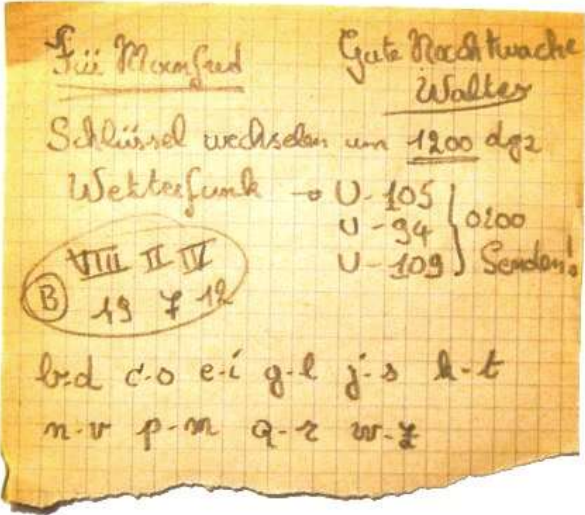 Für Manfred
Gute Nachtwache
Walter
Schlüssel wechseln um 1200 dgz
Wetterfunk → U-105
U-94
U-109
0200
Senden!
VIII II IV
B 19 7 12
b-d c-o e-i g-l j-s k-t
n-v p-m q-r w-z